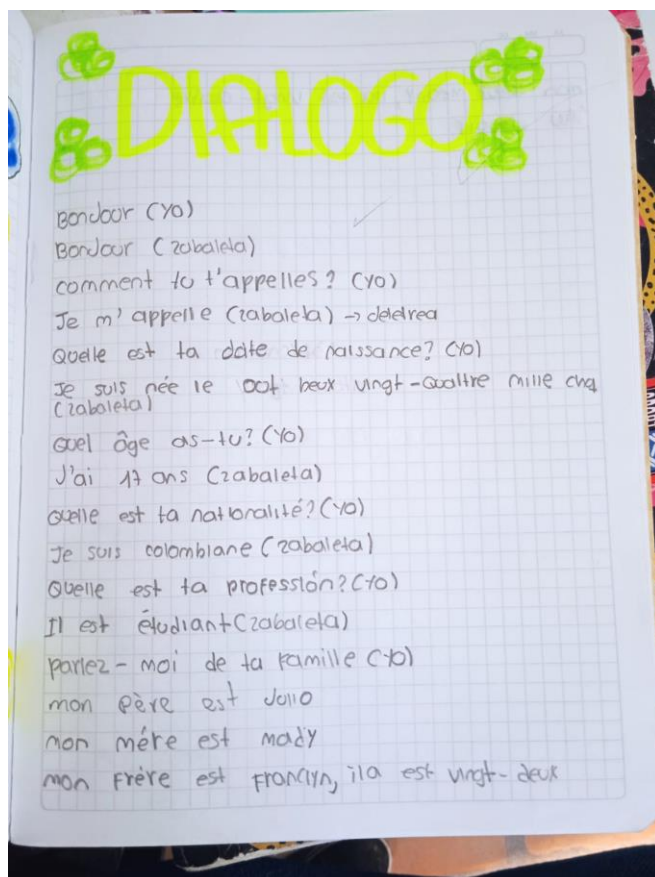 DIALOGO
Bonjour (Yo)
Bonjour (zabaleta)
comment tu t'appelles? (Yo)
Je m'appelle (zabaleta) →
Quelle est ta date de naissance? (Yo)
Je suis née le oot beux vingt-quattre mille cnq
(zabaleta)
Quel âge as-tu? (Yo)
J'ai 17 ans (zabaleta)
Quelle est ta nationalité? (Yo)
Je suis colombiane (zabaleta)
Quelle est ta professión? (Yo)
Il est étudiant (zabaleta)
parlez-moi de ta famille (Yo)
mon père est Julio
mon mére est mady
mon Frère est Franclyn, ila est vingt-deux